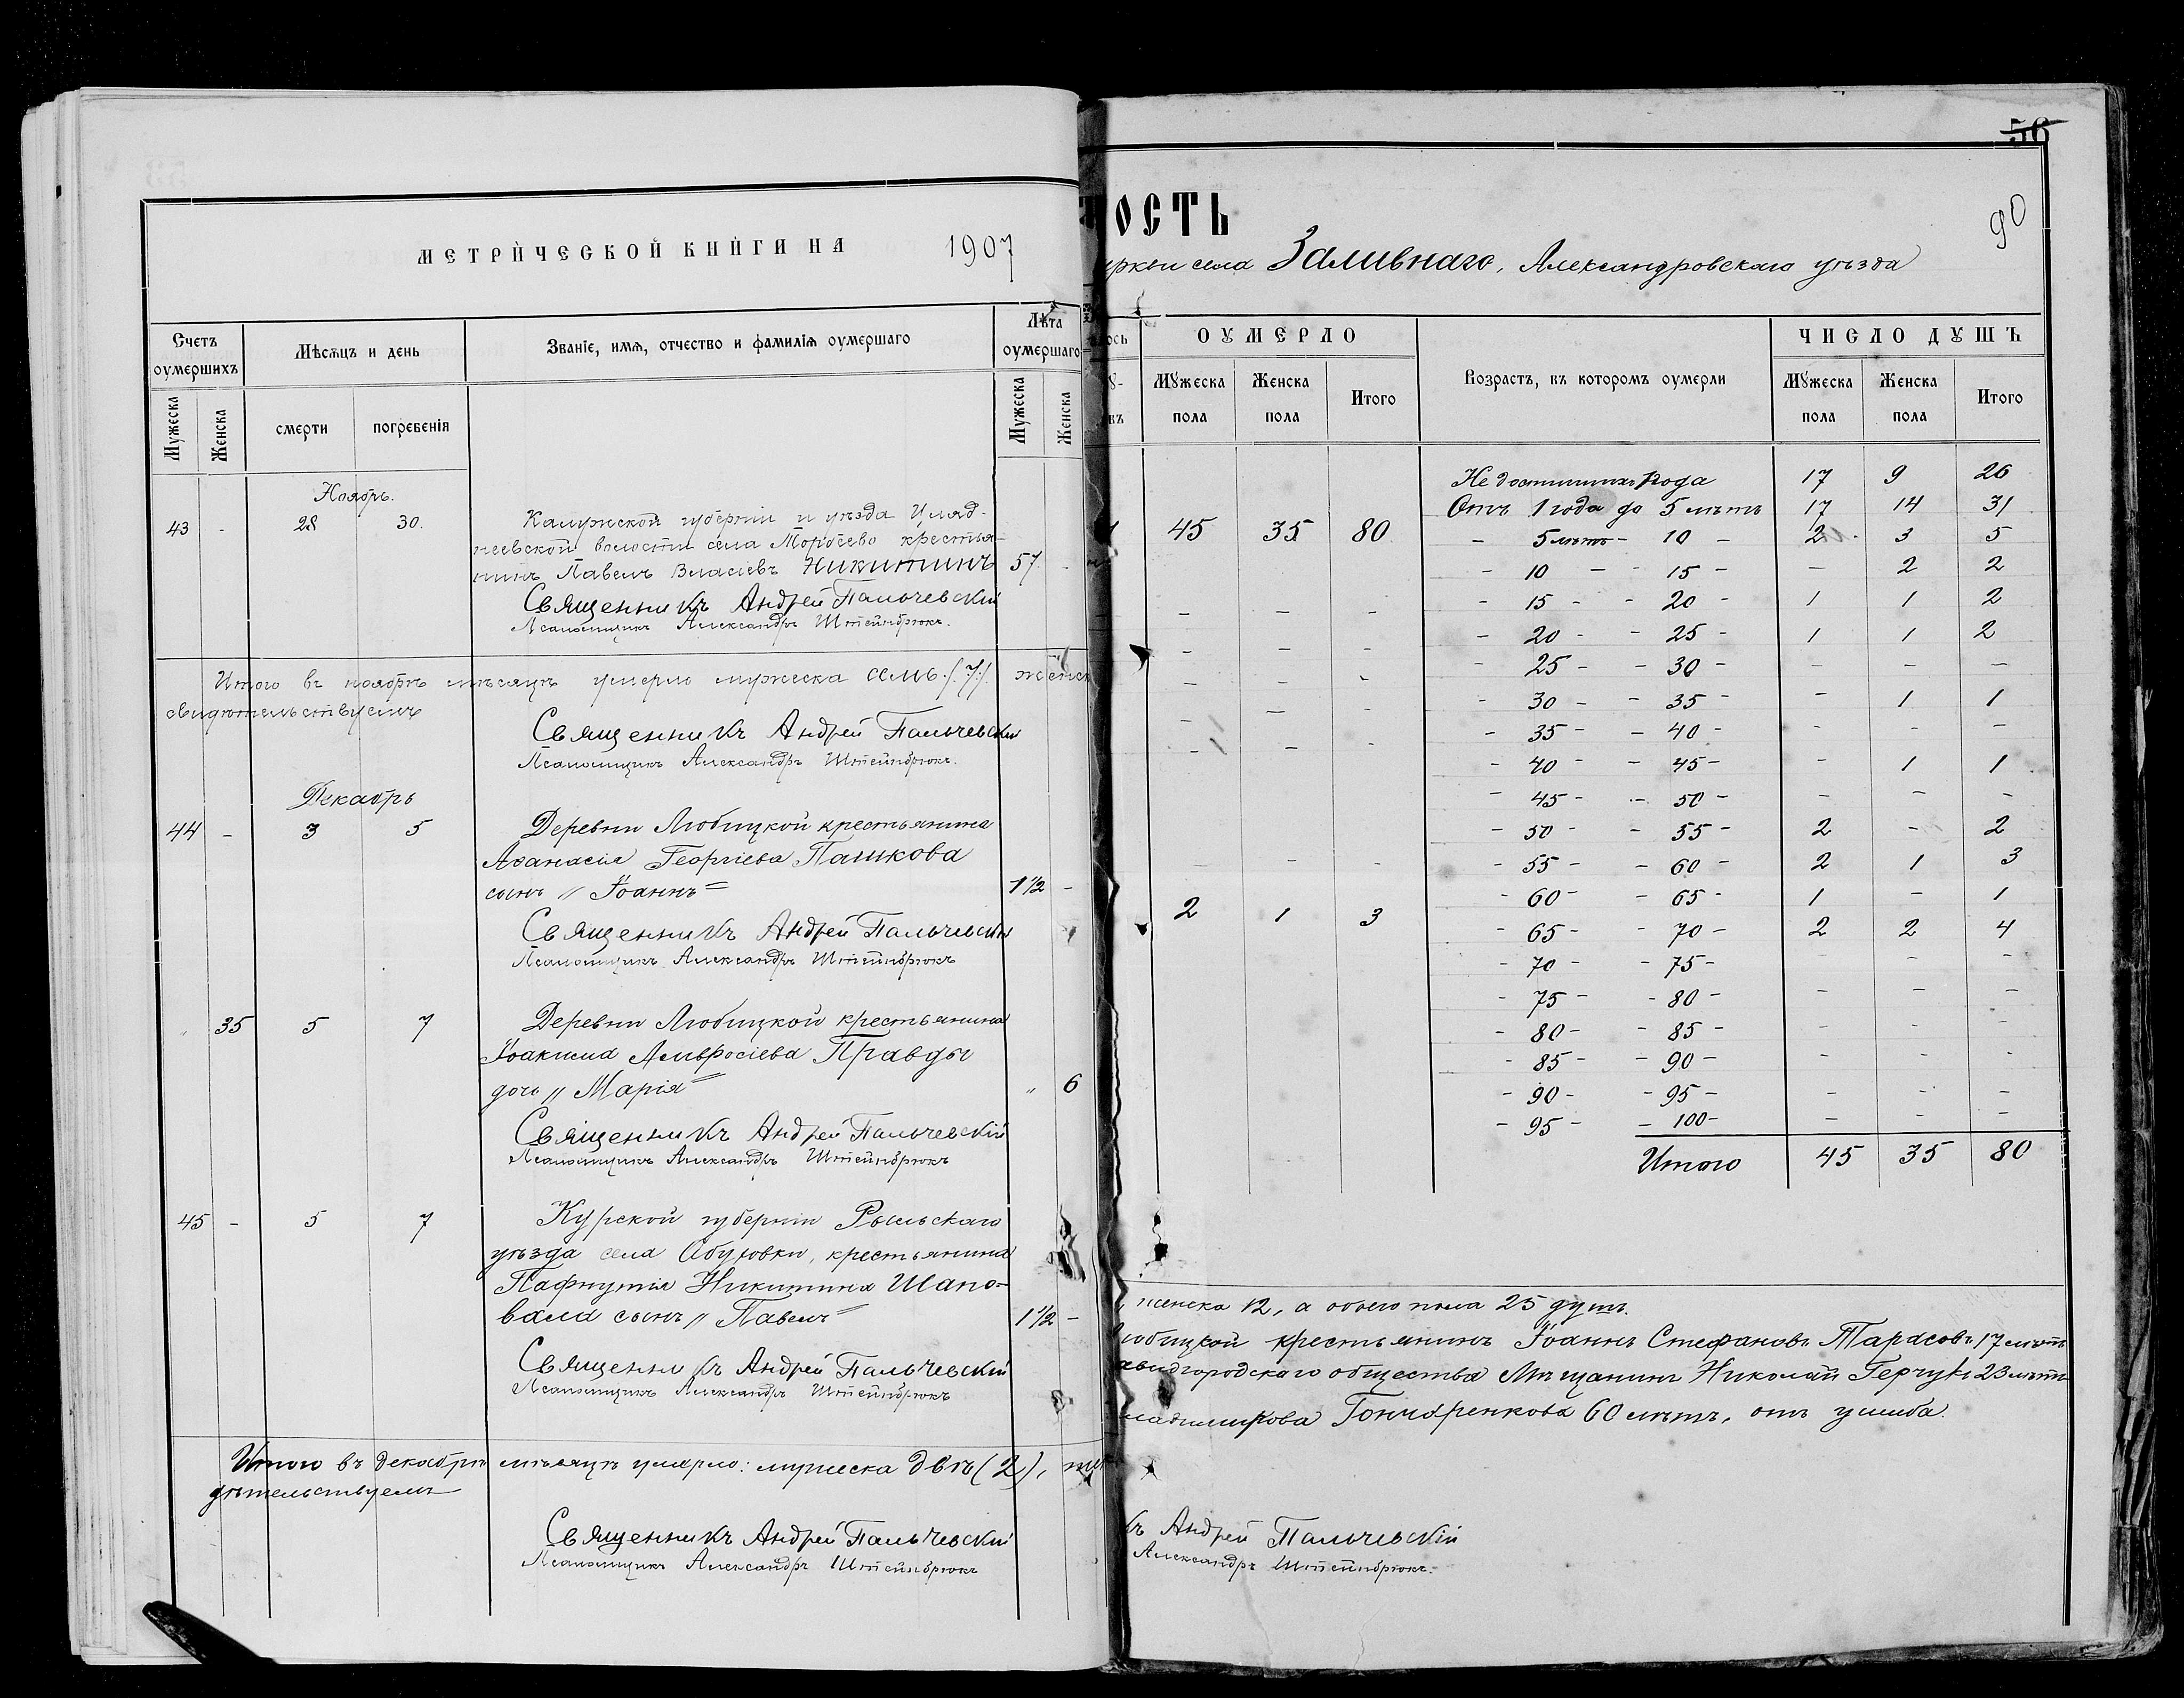 МЕТРИЧЕСКОЙ КНИГИ НА 1907
Счетъ оумершихъ
Мѣсяцъ и день
Званіе, имя, отчество и фамилія оумершаго
Лѣта оумершаго
Мужеска
Женска
смерти
погребенія
Мужеска
Женска
Ноябрь.
43 - 28 30.
Калужской губерніи и уѣзда
волости села крестья-
нинъ Павелъ Власіевъ Никитинъ 57 -
Священникъ Андрей Пальчевскій
Псаломщикъ Александръ Штейнбрюкъ.
Итого въ ноябрѣ мѣсяцѣ умерло мужеска семь /7/. женск
свидѣтельствуемъ
Священникъ Андрей Пальчевскій
Псаломщикъ Александръ Штейнбрюкъ.
Декабрь
44 - 3 5 Деревни Любицкой крестьянина
Аѳанасія Георгіева Пашкова
сынъ „Іоаннъ“ 1½ -
Священникъ Андрей Пальчевскій
Псаломщикъ Александръ Штейнбрюкъ
„ 35 5 7 Деревни Любицкой крестьянина
Іоакима Амвросіева Правды
дочь „Марія“ „ 6
Священникъ Андрей Пальчевскій
Псаломщикъ Александръ Штейнбрюкъ
45 - 5 7 Курской губерніи Рыльскаго
уѣзда села крестьянина
Пафнутія Никитина Шапо-
вала сынъ „Павелъ“ 1½ -
Священникъ Андрей Пальчевскій
Псаломщикъ Александръ Штейнбрюкъ
Итого въ декабрѣ мѣсяцѣ умерло: мужеска двѣ (2),
дѣтельствуемъ
Священникъ Андрей Пальчевскій
Псаломщикъ Александръ Штейнбрюкъ
56
90
ОСТЬ
еркви села Заливнаго, Александровскаго уѣзда
ОУМЕРЛО
Возрастъ, въ которомъ оумерли
ЧИСЛО ДУШЪ
Мужеска пола
Женска пола
Итого
Мужеска пола
Женска пола
Итого
45 35 80
2 1 3
Не достигшихъ 1 года 17 9 26
Отъ 1 года до 5 лѣтъ 17 14 31
- 5 лѣтъ - 10 - 2 3 5
- 10 - - 15 - - 2 2
- 15 - - 20 - 1 1 2
- 20 - - 25 - 1 1 2
- 25 - - 30 - - - -
- 30 - - 35 - - 1 1
- 35 - - 40 - - - -
- 40 - - 45 - - 1 1
- 45 - - 50 - - - -
- 50 - - 55 - 2 - 2
- 55 - - 60 - 2 1 3
- 60 - - 65 - 1 - 1
- 65 - - 70 - 2 2 4
- 70 - - 75 - - - -
- 75 - - 80 - - - -
- 80 - - 85 - - - -
- 85 - - 90 - - - -
- 90 - - 95 - - - -
- 95 - - 100 - - - -
Итого 45 35 80
женска 12, а обоего пола 25 душъ.
юбицкой крестьянинъ Іоаннъ Стефановъ Тарасовъ 17 лѣтъ
городскаго общества Мѣщанинъ Николай 23 лѣтъ
ладимирова Гончаренкова 60 лѣтъ, отъ ушиба.
къ Андрей Пальчевскій
Александръ Штейнбрюкъ.